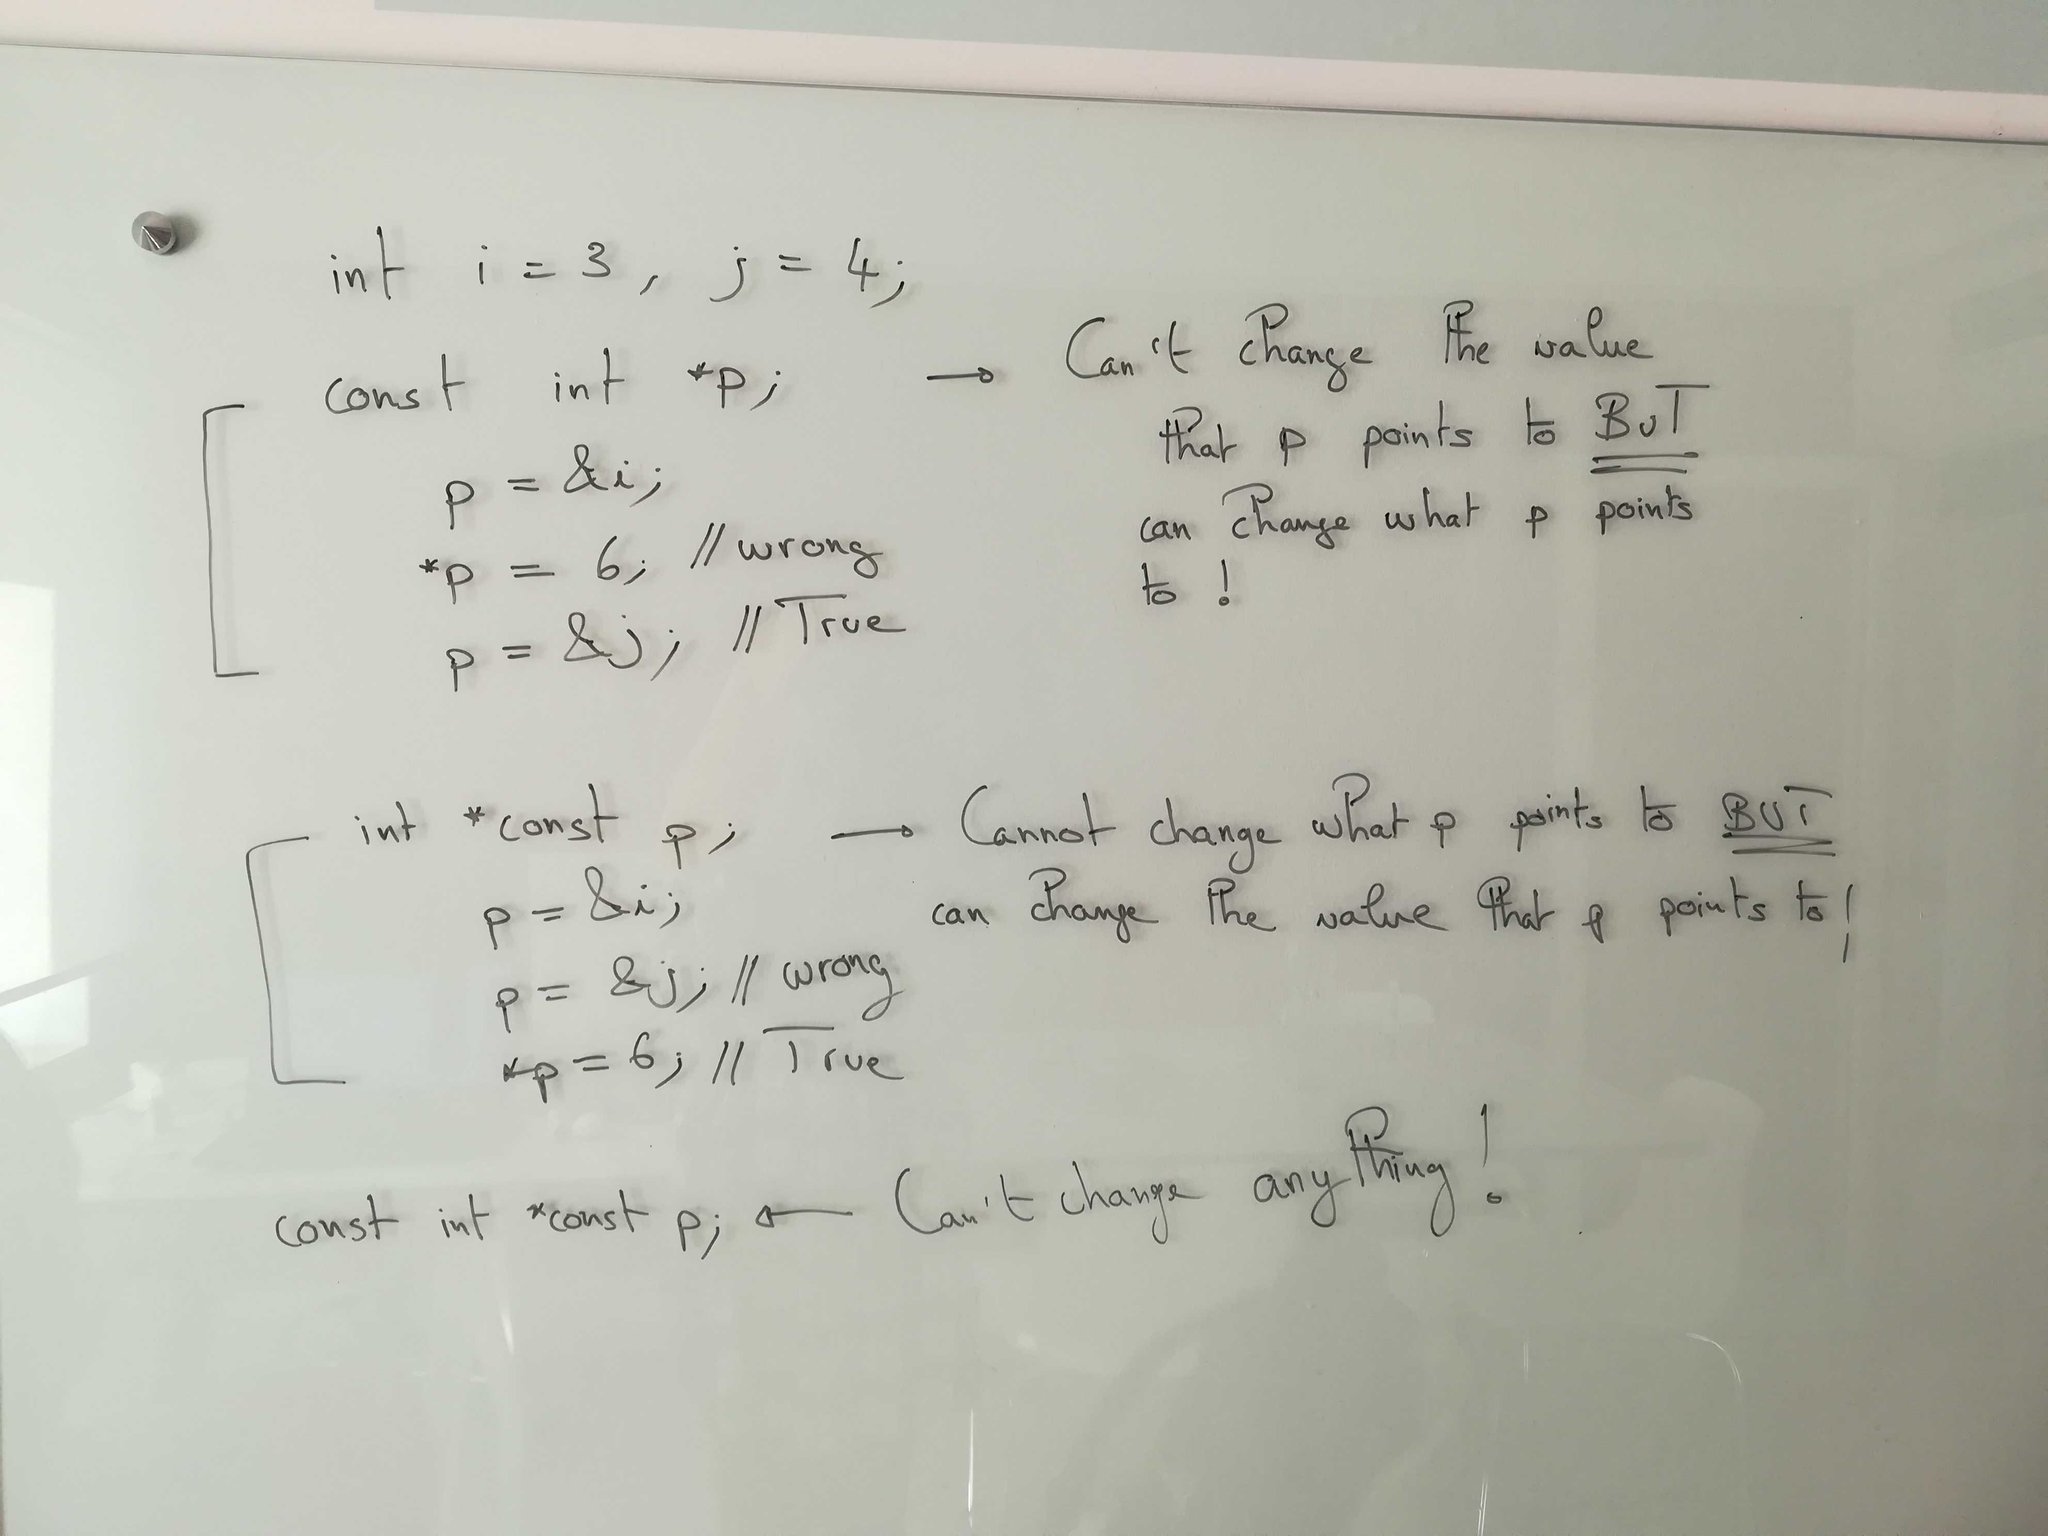 int i = 3, j = 4;
const int *p; → Can't change the value
that p points to BUT
can change what p points
to!
p = &i;
*p = 6; // wrong
p = &j; // True
int *const p; → Cannot change what p points to BUT
can change the value that p points to!
p = &i;
p = &j; // wrong
*p = 6; // True
const int *const p; ← Can't change anything!